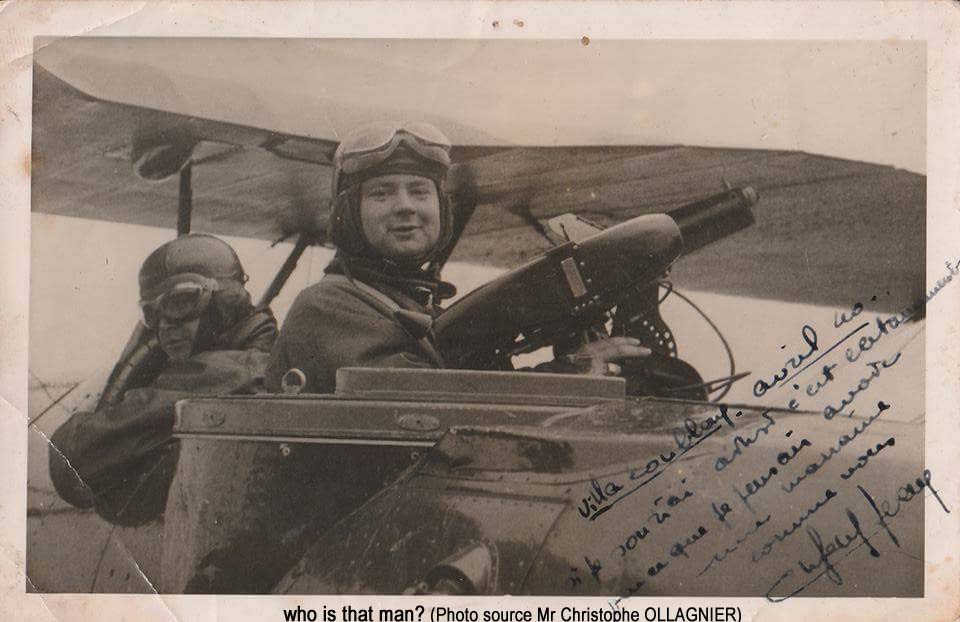 Villa coublay. avril 40
si je souriai ainsi c'est certainement
parce que je pensais avoir
une marraine
comme vous
Jean
who is that man? (Photo source Mr Christophe OLLAGNIER)